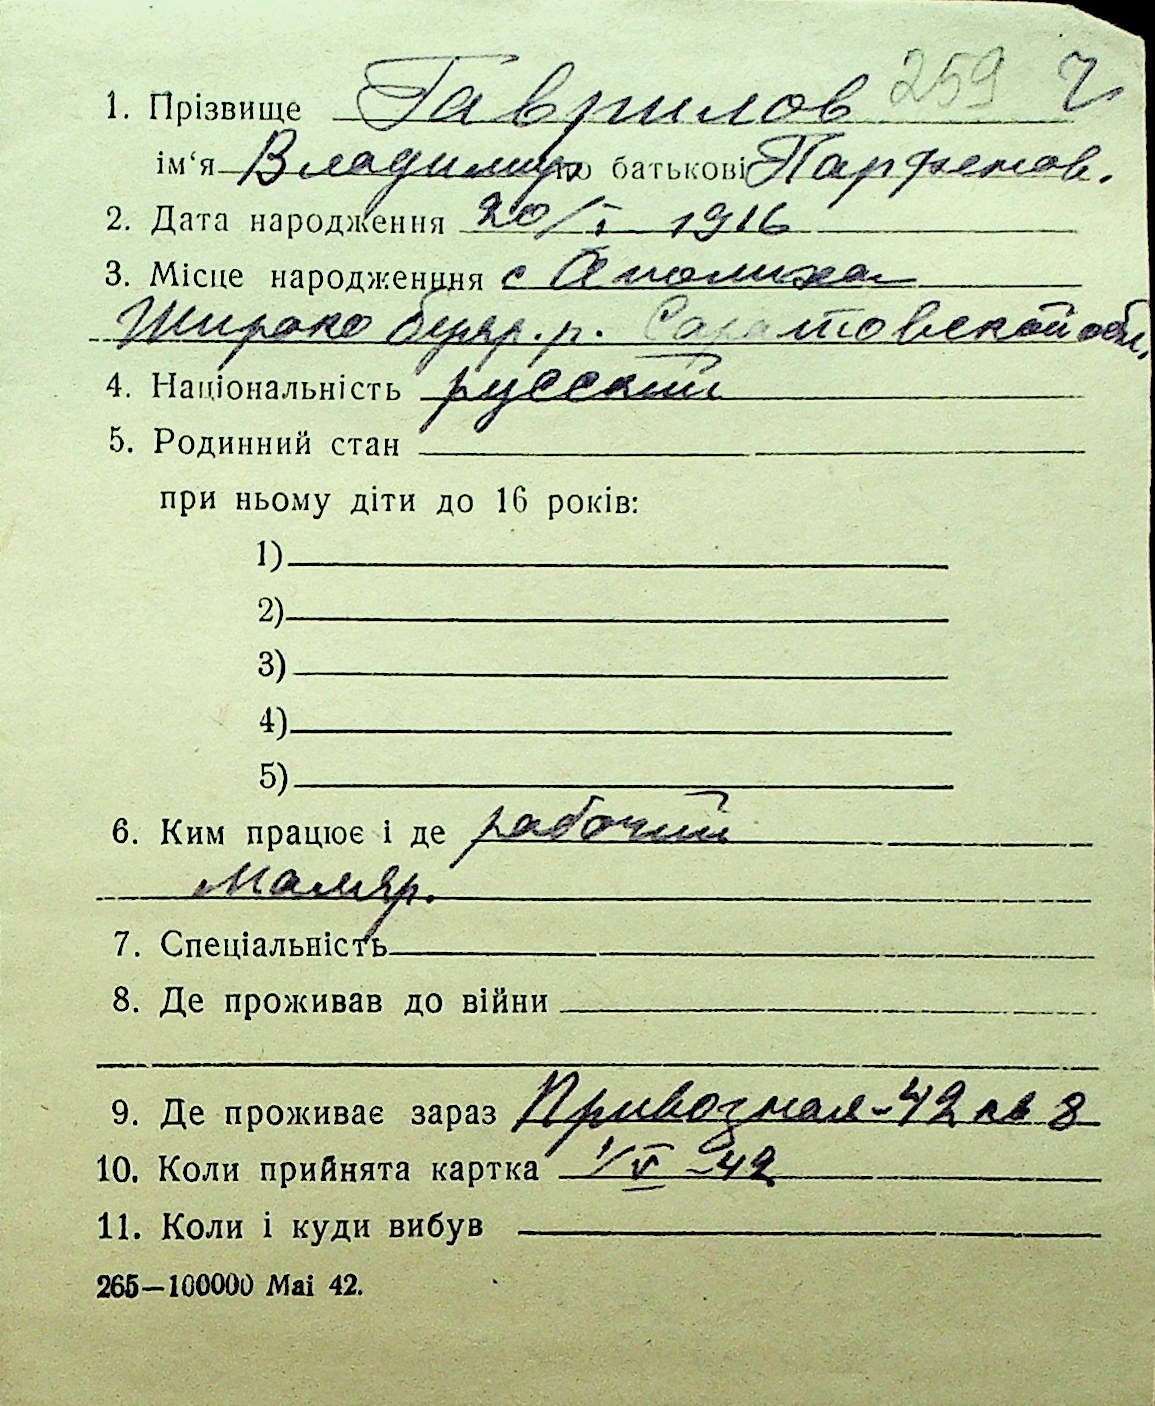 259 Ч
1. Прізвище Гаврилов
ім'я Владимир по батькові Парфенов.
2. Дата народження 20/I 1916
3. Місце народженння с Аполиха
Широко буер. р. Саратовской обл.
4. Національність русский
5. Родинний стан
при ньому діти до 16 років:
1)
2)
3)
4)
5)
6. Ким працює і де рабочий
Маляр.
7. Спеціальність
8. Де проживав до війни
9. Де проживає зараз Привозная-42 кв 8
10. Коли прийнята картка 1/V -42
11. Коли і куди вибув
265—100000 Mai 42.